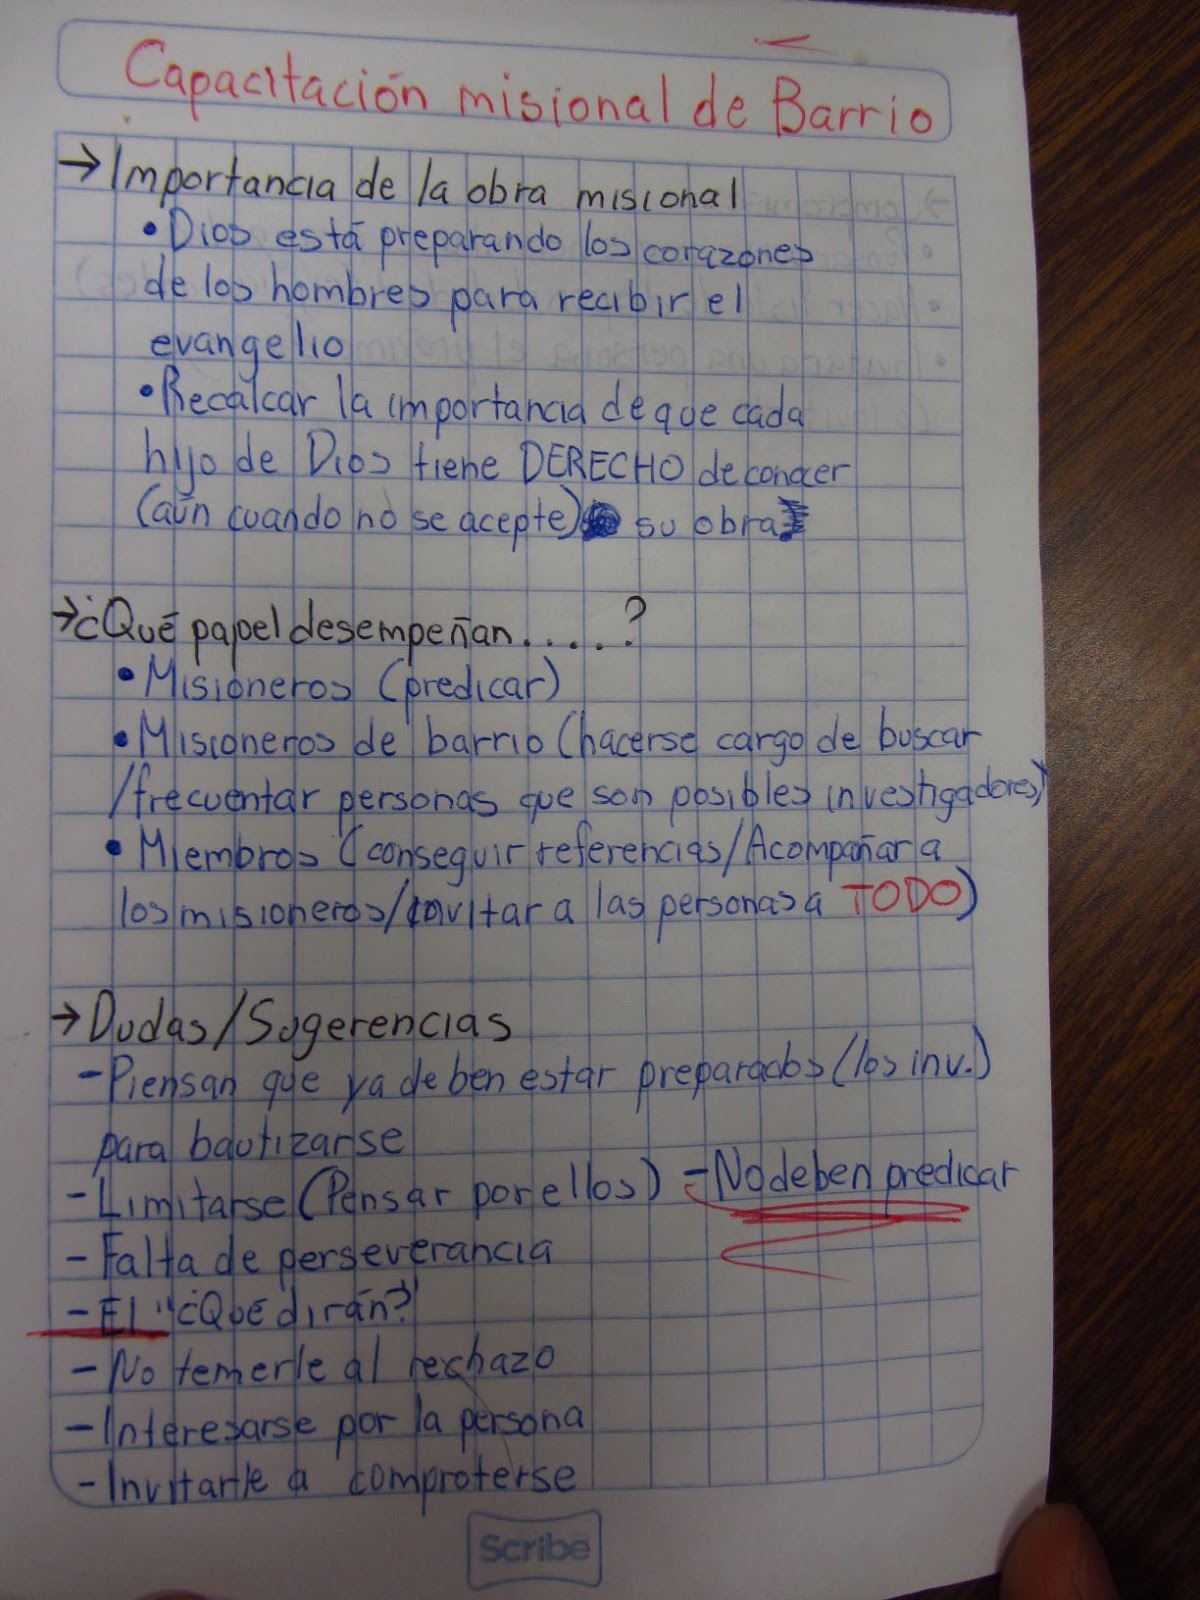 Capacitación misional de Barrio
→Importancia de la obra misional
•Dios está preparando los corazones
de los hombres para recibir el
evangelio
•Recalcar la importancia de que cada
hijo de Dios tiene DERECHO de conocer
(aún cuando no se acepte) su obra
→¿Qué papel desempeñan.....?
•Misioneros (predicar)
•Misioneros de barrio (hacerse cargo de buscar
/frecuentar personas que son posibles investigadores)
•Miembros (conseguir referencias/Acompañar a
los misioneros/invitar a las personas a TODO)
→Dudas/Sugerencias
-Piensan que ya deben estar preparados (los inv.)
para bautizarse
-Limitarse (Pensar por ellos) -No deben predicar
-Falta de perseverancia
-El "¿Qué dirán?"
-No temerle al rechazo
-Interesarse por la persona
-Invitarle a comproterse
Scribe